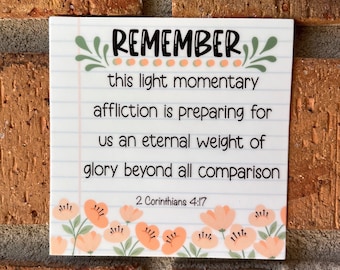 REMEMBER
this light momentary
affliction is preparing for
us an eternal weight of
glory beyond all comparison
2 Corinthians 4:17